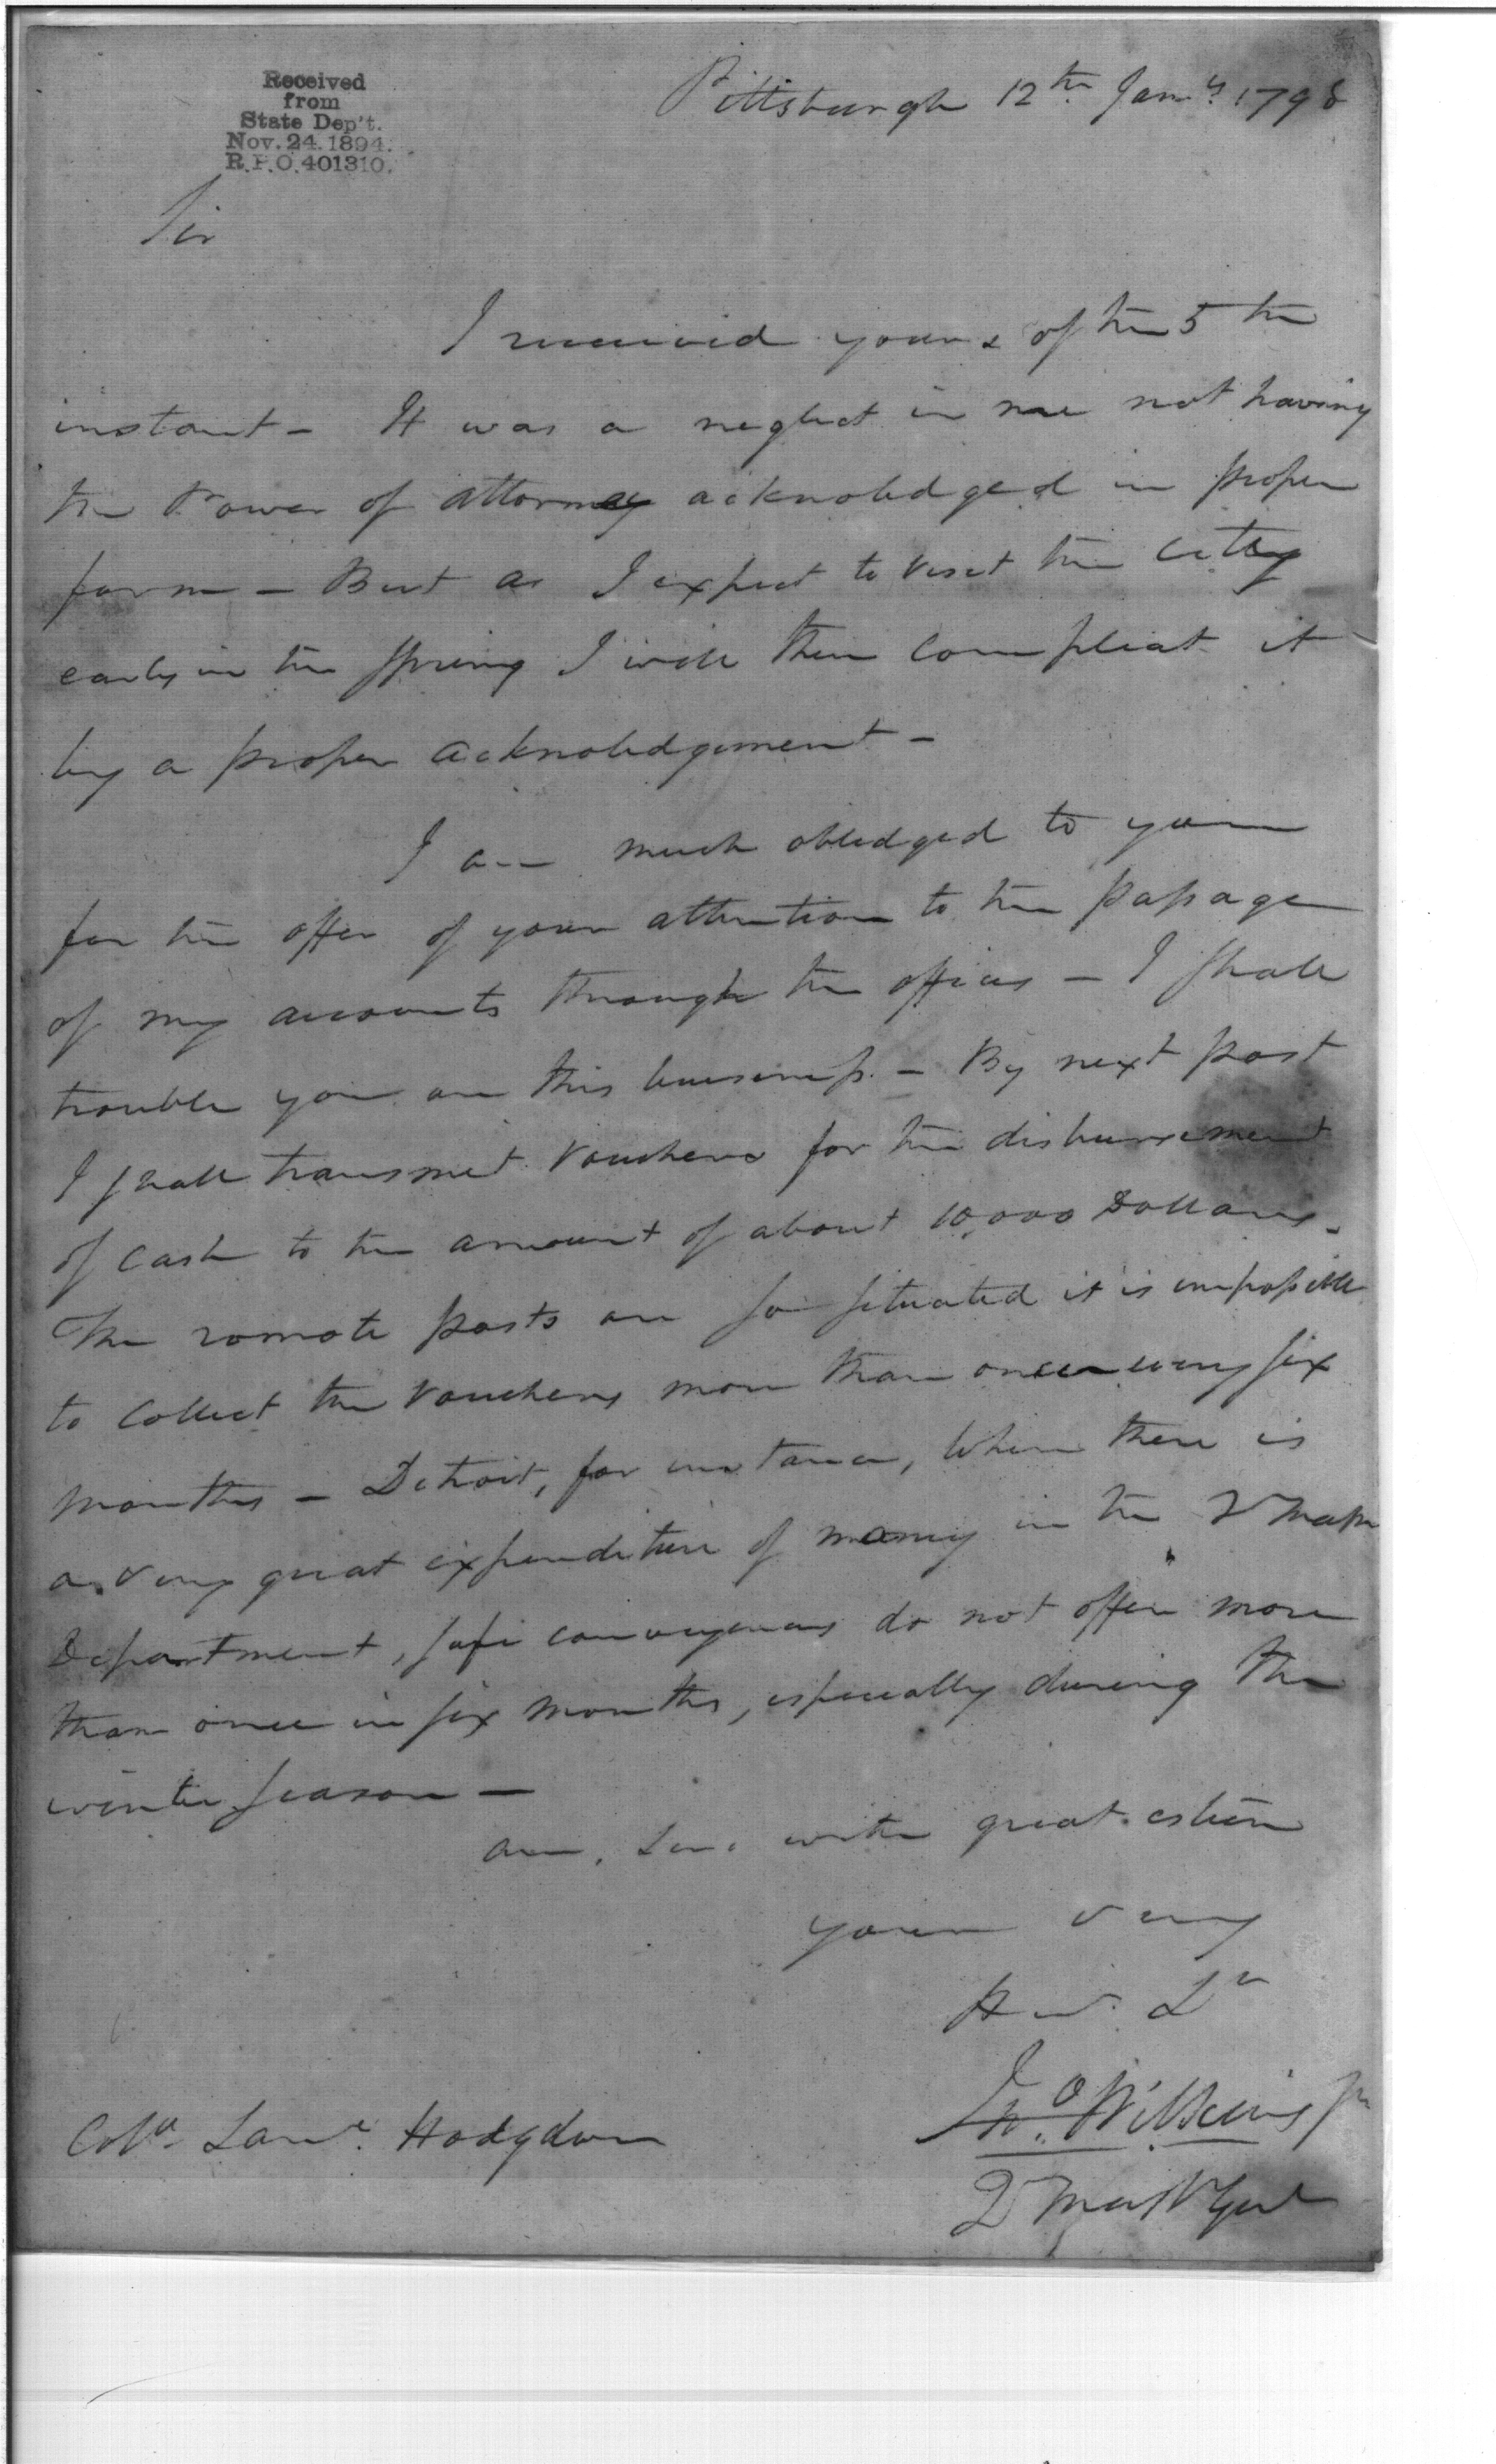 Received
from
State Dep't.
Nov. 24. 1894.
R.P.O. 401310.
Pittsburgh 12th Jany. 1798
Sir
I received yours of the 5th
instant - It was a neglect in me not having
the Power of attorney acknoledged in proper
form - But as I expect to visit the City
early in the Spring I will then compleat it
by a proper acknoledgement -
I am much obledged to you
for the offer of your attention to the passage
of my accounts through the offices - I shall
trouble you on this business. - By next post
I shall transmit vouchers for the disbursement
of Cash to the amount of about 10,000 Dollars -
The remote posts are so situated it is impossible
to Collect the vouchers more than once every six
months - Detroit, for instance, where there is
a very great expenditure of money in the Q Mas
Department, safe conveyances do not offer more
than once in six months, especially during the
winter season -
am, Sir, with great esteem
your very
H S
Jno. Wilkins Jr
Q Mast Genl
Colo. Saml. Hodgdon